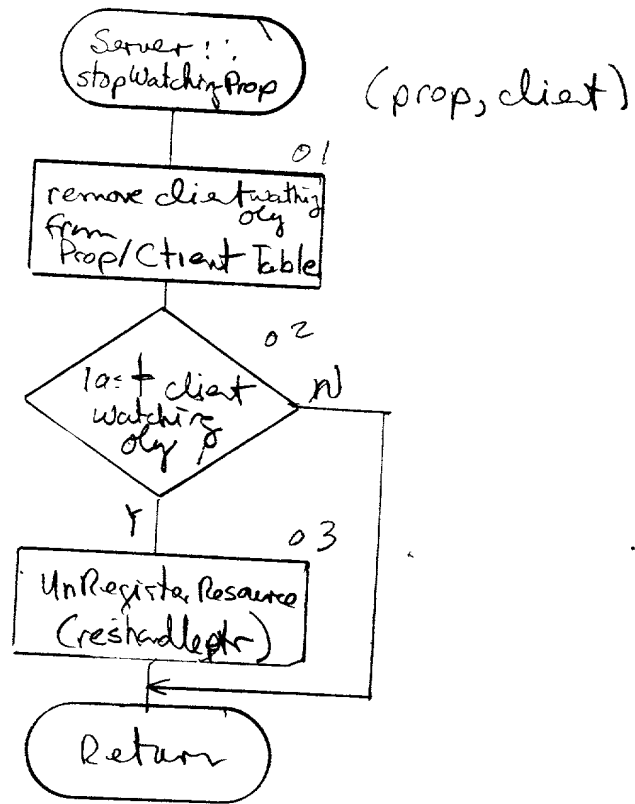 Server::
stopWatchingProp
(prop, client)
01
remove client watching
obj
from
Prop/Client Table
02
last client
watching
obj ?
N
Y
03
UnRegisterResource
(reshandleptr)
Return